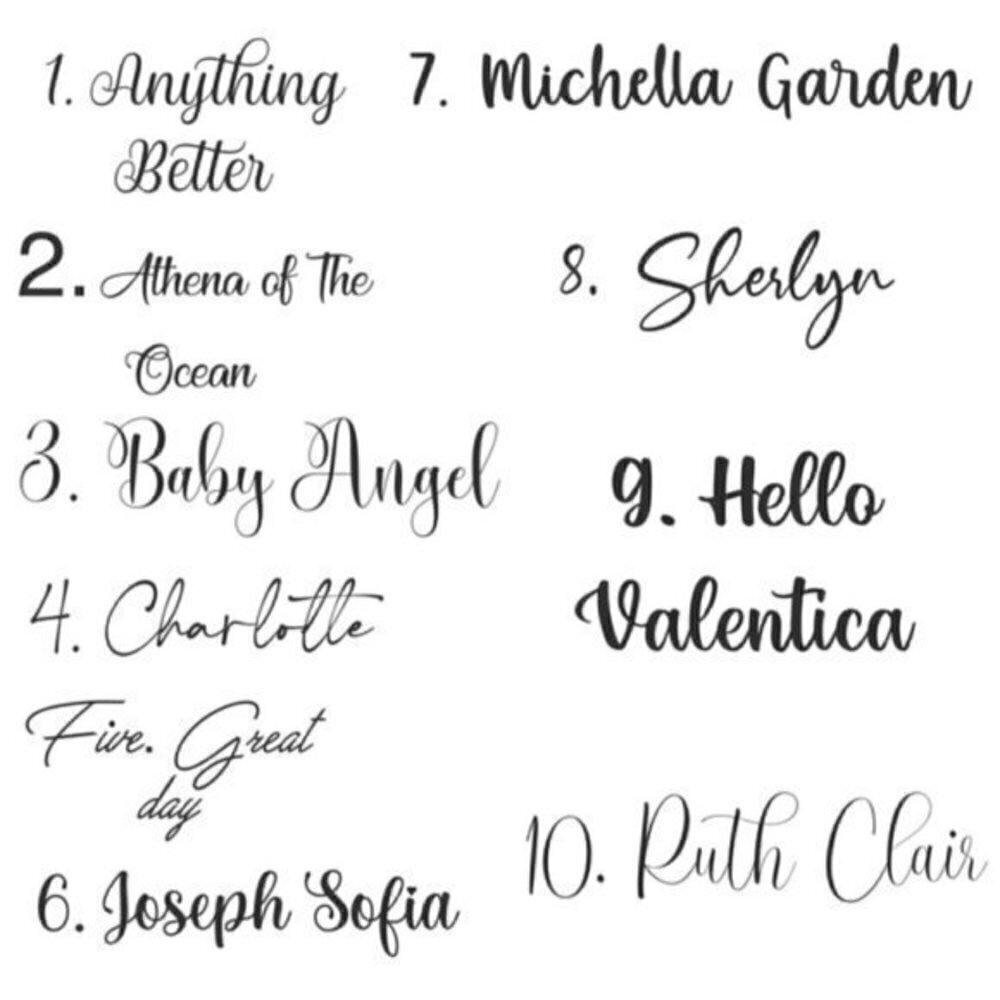 1. Anything
Better
2. Athena of The
Ocean
3. Baby Angel
4. Charlotte
Five. Great
day
6. Joseph Sofia
7. Michella Garden
8. Sherlyn
9. Hello
Valentica
10. Ruth Clair